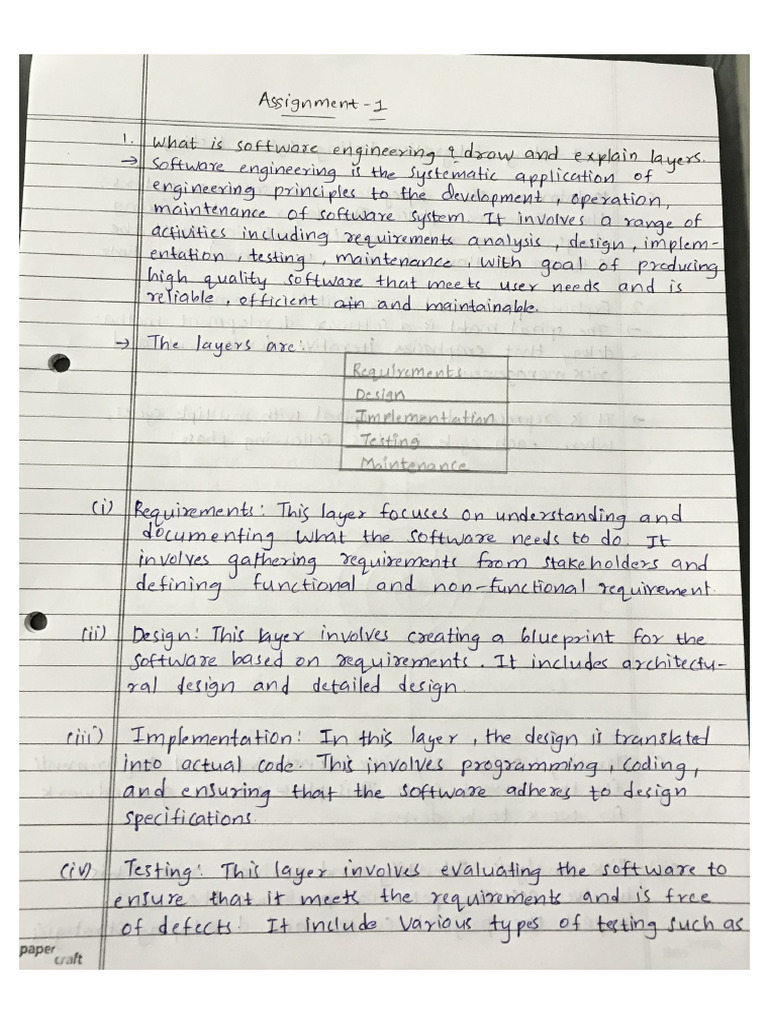 Assignment-1
1. What is software engineering & draw and explain layers.
→ Software engineering is the systematic application of
engineering principles to the development, operation,
maintenance of software system. It involves a range of
activities including requirements analysis, design, implem-
entation, testing, maintenance, with goal of producing
high quality software that meets user needs and is
reliable, efficient ain and maintainable.
→ The layers are:
Requirements
Design
Implementation
Testing
Maintenance
(i) Requirements: This layer focuses on understanding and
documenting what the software needs to do. It
involves gathering requirements from stakeholders and
defining functional and non-functional requirement.
(ii) Design: This layer involves creating a blueprint for the
software based on requirements. It includes architectu-
ral design and detailed design.
(iii) Implementation: In this layer, the design is translated
into actual code. This involves programming, coding,
and ensuring that the software adheres to design
specifications.
(iv) Testing: This layer involves evaluating the software to
ensure that it meets the requirements and is free
of defects. It include various types of testing such as
paper
craft